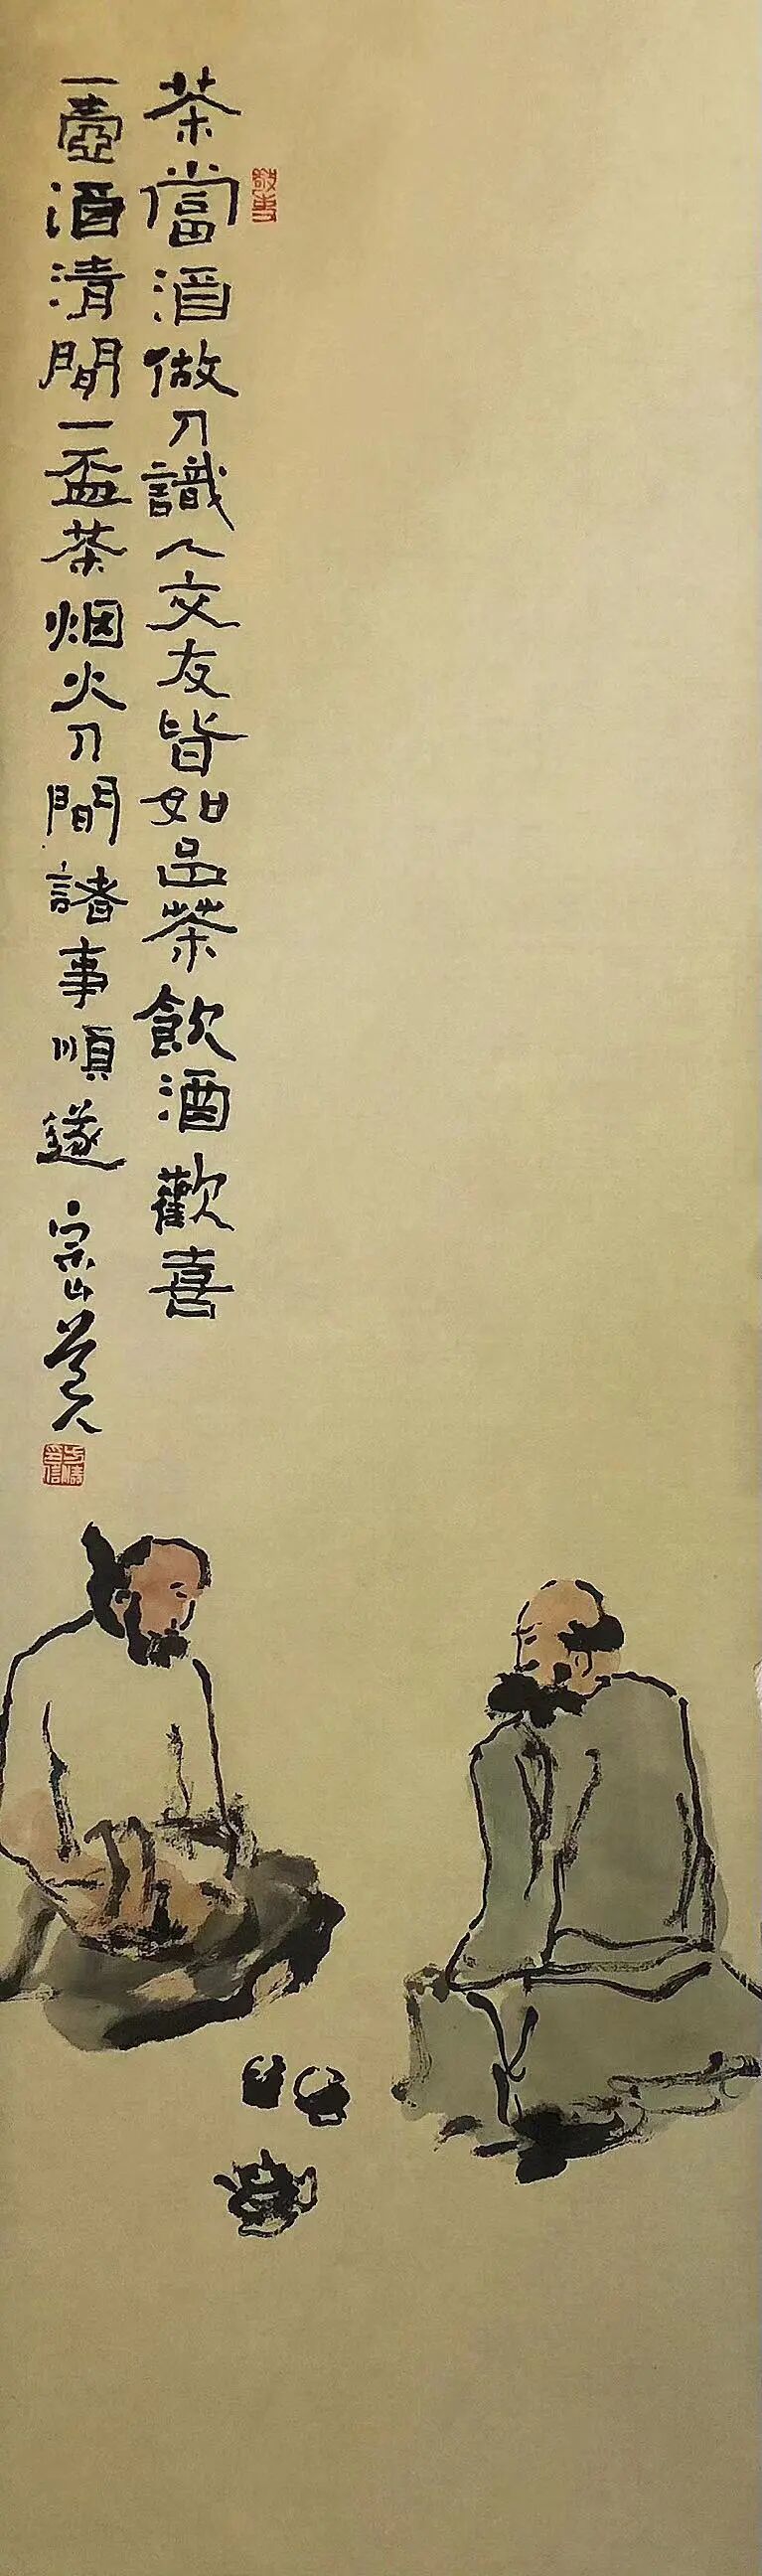 敬事
茶當酒做識人交友皆如品茶飲酒歡喜
一壺酒清間一盃茶烟火間諸事順遂
宗山道人